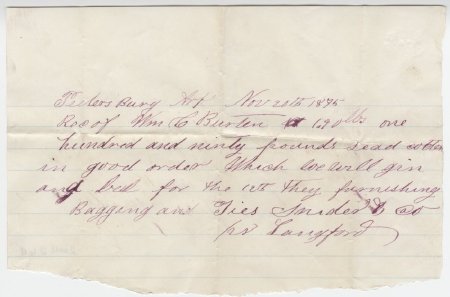 Peetersburg Ark Nov 20th 1895
Rec of Wm C Burten 190 lbs one
hundred and ninty pounds sead cotton
in good order Which we will gin
and bail for the they furnishing
Bagging and Ties Snider & Co
pr Langford